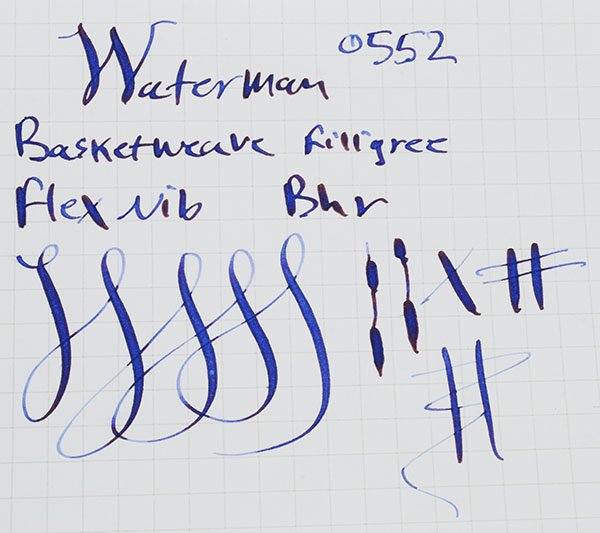 Waterman 0552
Basketweave Filligree
Flex Nib Bhr